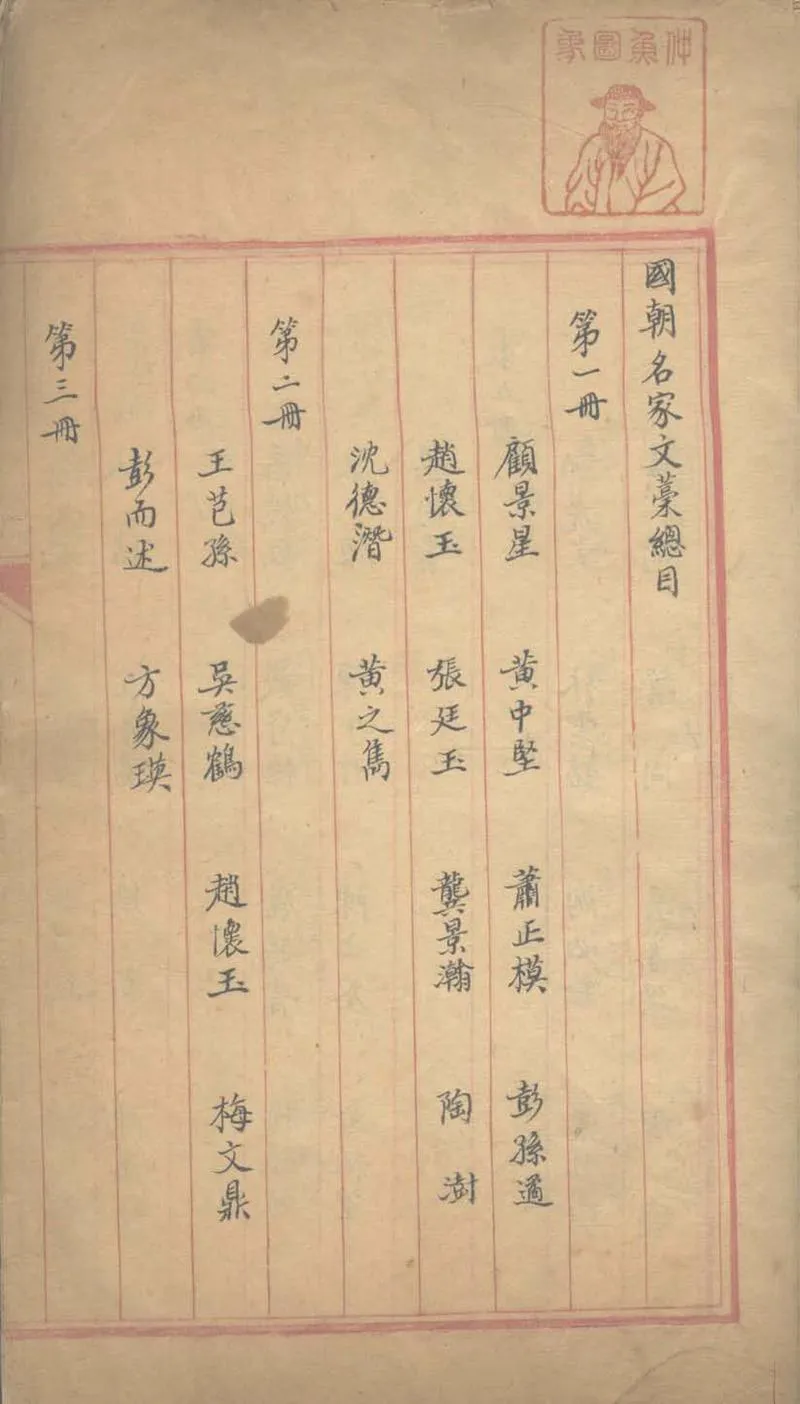 仲魚圖象
國朝名家文藁總目
第一冊
顧景星 黄中堅 蕭正模 彭孫遹
趙懷玉 張廷玉 龔景瀚 陶澍
沈德潛 黄之雋
第二冊
王芑孫 吳慈鶴 趙懷玉 梅文鼎
彭而述 方象瑛
第三冊